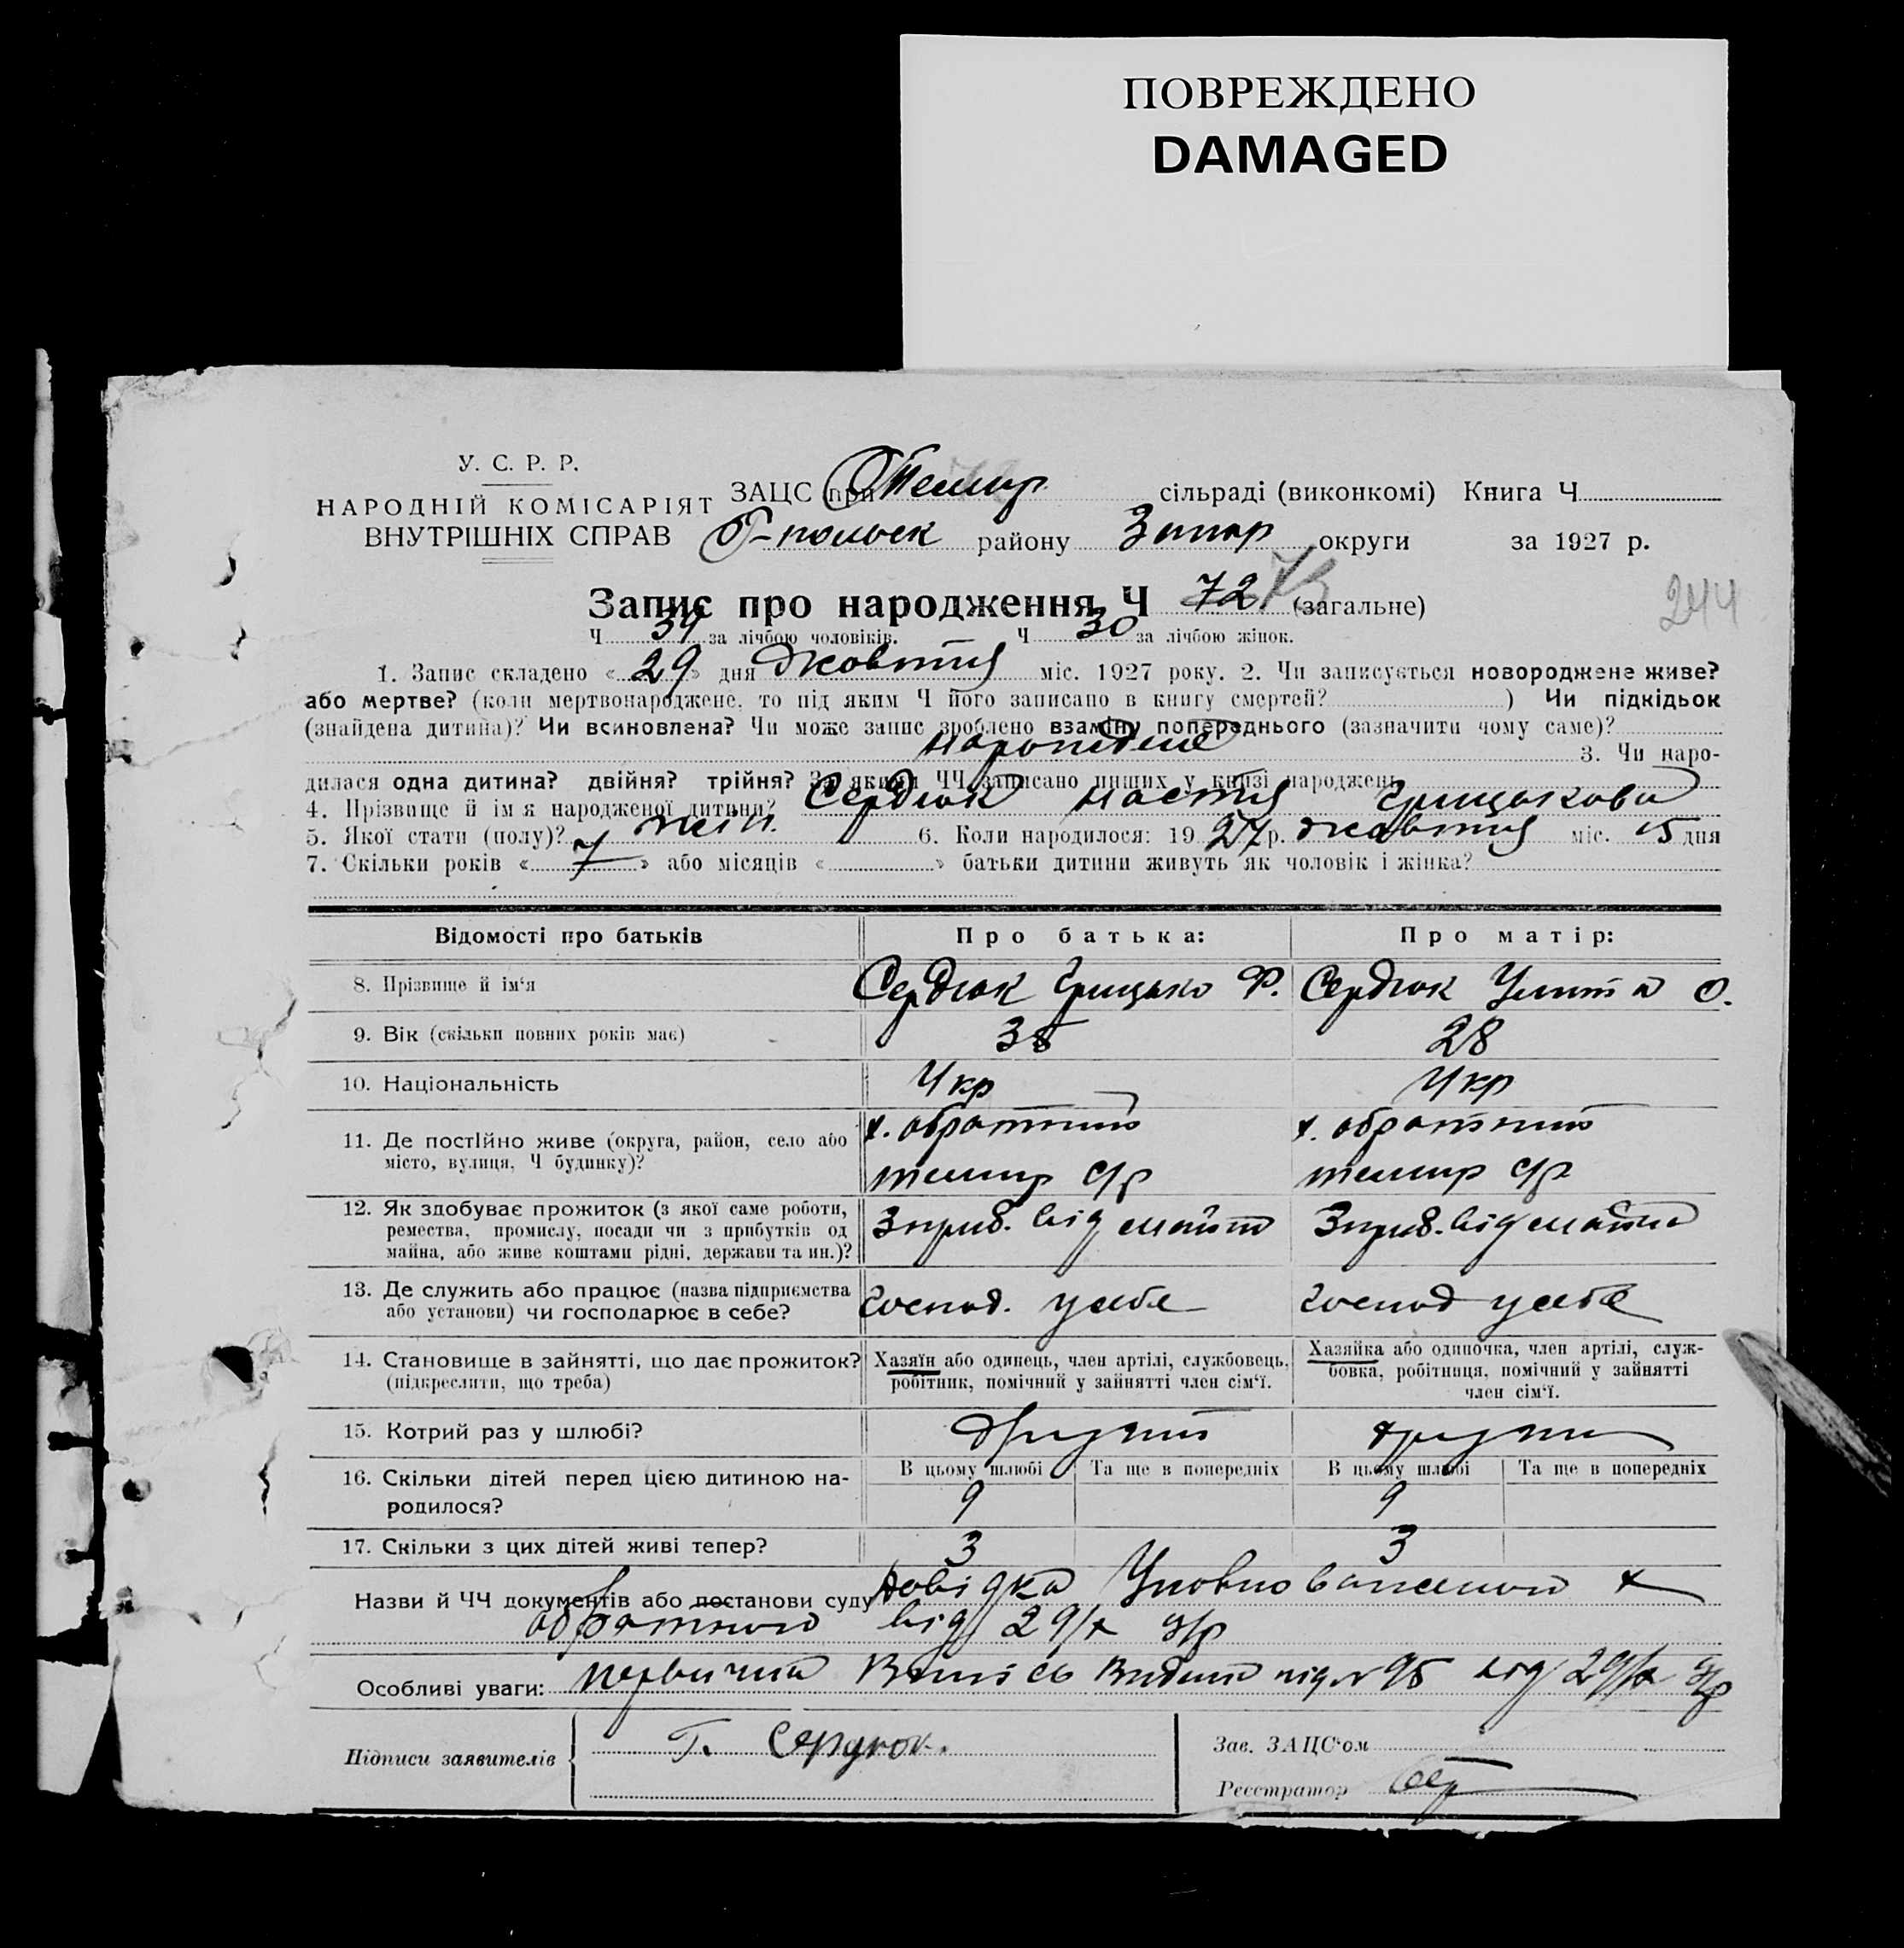 ПОВРЕЖДЕНО
DAMAGED
У. С. Р. Р.
НАРОДНІЙ КОМІСАРІЯТ
ВНУТРІШНІХ СПРАВ
ЗАЦС при Темир сільраді (виконкомі) Книга Ч
Г-польськ району Запор округи за 1927 р.
Запис про народження Ч 72 73 (загальне)
244
Ч 34 за лічбою чоловіків. Ч 30 за лічбою жінок.
1. Запис складено « 29 » дня жовтня міс. 1927 року. 2. Чи записується новороджене живе?
або мертве? (коли мертвонароджене, то під яким Ч його записано в книгу смертей? ) Чи підкідьок
(знайдена дитина)? Чи всиновлена? Чи може запис зроблено взаміну попереднього (зазначити чому саме)?
народжене 3. Чи наро-
дилася одна дитина? двійня? трійня? За якими ЧЧ записано инших у книзі народжень
4. Прізвище й ім'я народженої дитини? Сердюк Настя Грицькова
5. Якої стати (полу)? жін. 6. Коли народилося: 19 27 р. жовтня міс. 15 дня
7. Скільки років « 7 » або місяців « » батьки дитини живуть як чоловік і жінка?
Відомості про батьків Про батька: Про матір:
8. Прізвище й ім'я Сердюк Грицько Ф. Сердюк Улита О.
9. Вік (скільки повних років має) 38 28
10. Національність Укр Укр
11. Де постійно живе (округа, район, село або місто, вулиця, Ч будинку)?
х. обратний х. обратний
темир с/р темир с/р
12. Як здобуває прожиток (з якої саме роботи, ремества, промислу, посади чи з прибутків од майна, або живе коштами рідні, держави та ин.)?
З приб. від майна З приб. від майна
13. Де служить або працює (назва підприємства або установи) чи господарює в себе?
господ. у себе господ у себе
14. Становище в зайнятті, що дає прожиток? (підкреслити, що треба)
Хазяїн або одинець, член артілі, службовець, робітник, помічний у зайнятті член сім'ї.
Хазяйка або одиночка, член артілі, служ-
бовка, робітниця, помічний у зайнятті
член сім'ї.
15. Котрий раз у шлюбі? другий друга
16. Скільки дітей перед цією дитиною на-
родилося?
В цьому шлюбі Та ще в попередніх В цьому шлюбі Та ще в попередніх
9 9
17. Скільки з цих дітей живі тепер? 3 3
Назви й ЧЧ документів або постанови суду Довідка Уповноваженого х
обратного від 29/х ц/р
Особливі уваги: первичний Випись видано під № 95 від 29/х ц/р
Підписи заявителів Г. Сердюк.
Зав. ЗАЦС'ом
Реєстратор